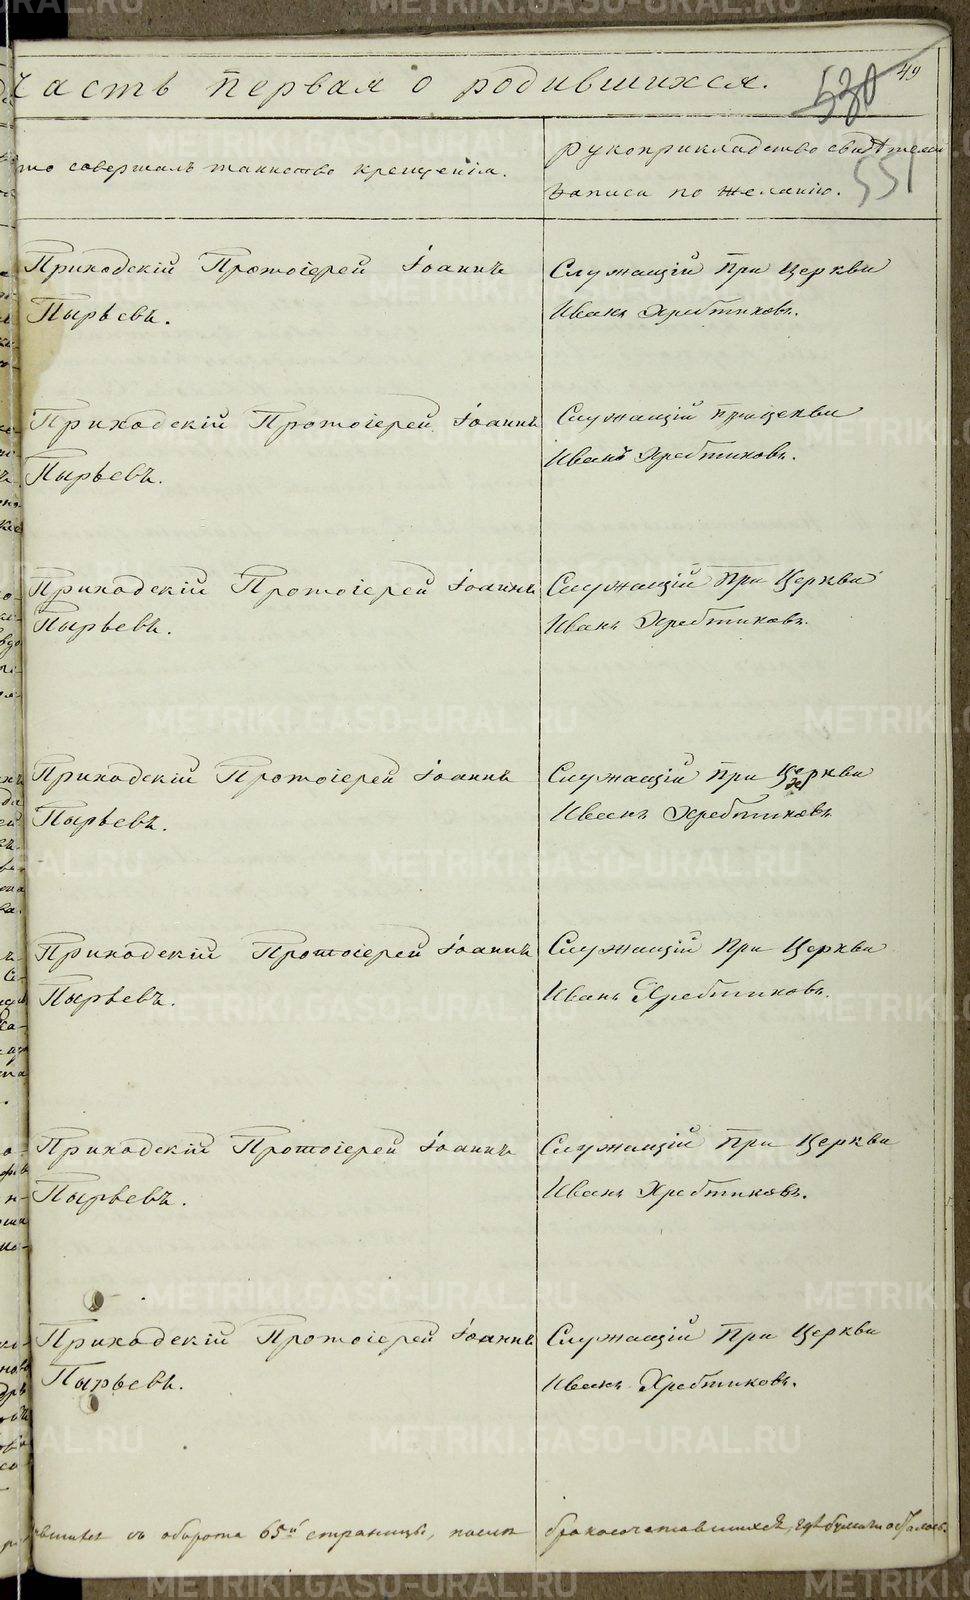 Часть первая о родившихся.
530
49
551
то совершалъ таинство крещенія.
Рукоприкладство свидѣтелей
записи по желанію.
Приходскій Протоіерей Іоаннъ
Пырьевъ.
Служащій при Церкви
Иванъ Хребтиковъ.
Приходскій Протоіерей Іоаннъ
Пырьевъ.
Служащій при цекви
Иванъ Хребтиковъ.
Приходскій Протоіерей Іоаннъ
Пырьевъ.
Служащій при Церкви
Иванъ Хребтиковъ.
Приходскій Протоіерей Іоаннъ
Пырьевъ.
Служащій при Церкви
Иванъ Хребтиковъ
Приходскій Протоіерей Іоаннъ
Пырьевъ.
Служащій При Церкви
Иванъ Хребтиковъ.
Приходскій Протоіерей Іоаннъ
Пырьевъ.
Служащій При Церкви
Иванъ Хребтиковъ.
Приходскій Протоіерей Іоаннъ
Пырьевъ.
Служащій При Церкви
Иванъ Хребтиковъ.
съ оборота 65й страницы, послѣ бракосочетавшихся, гдѣ бумага осталась.
METRIKI.GASO-URAL.RU